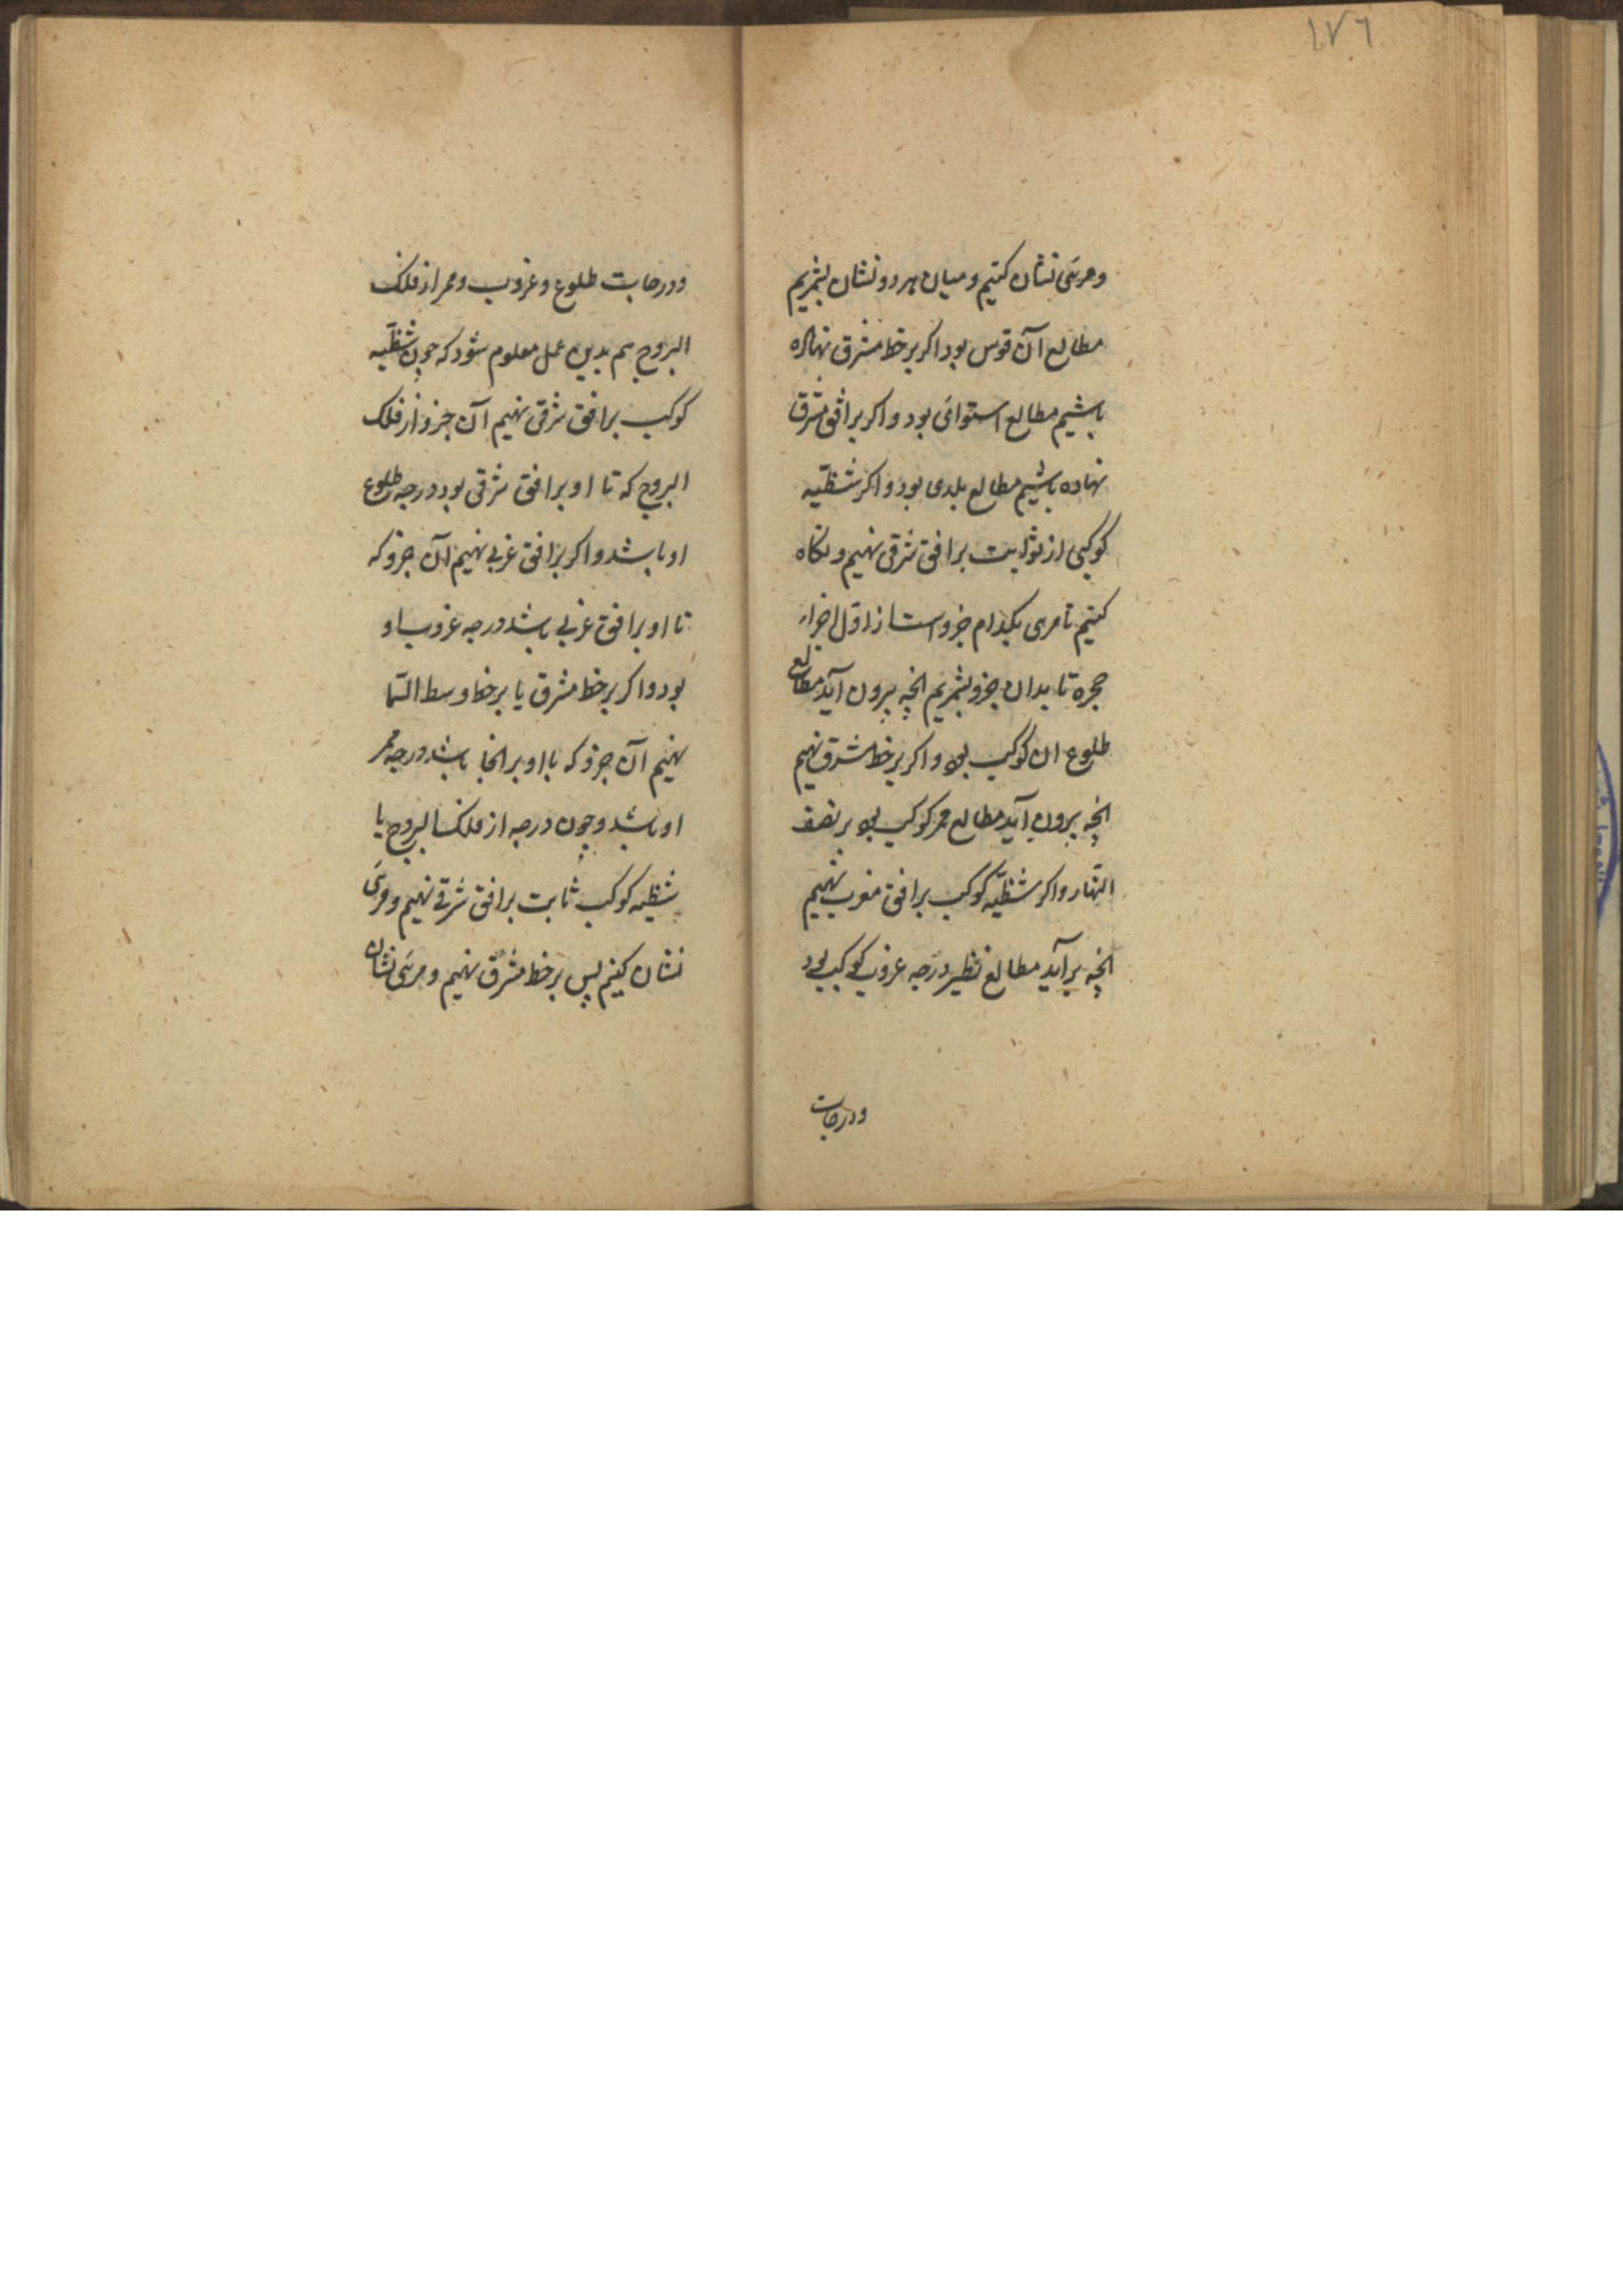 ١٧٦
ومرئی نشان کنیم و میان هر دو نشان بشمریم
مطالع آن قوس بود اکر بر خط مشرق نهاده
باشیم مطالع استوائی بود و اکر بر افق مشرق
نهاده باشیم مطالع بلدی بود و اکر شظیّه
کوکبی از ثوابت بر افق شرقی نهیم و نکاه
کنیم تا مری بکدام جزو است از اول اجزاء
حجره تا بدان جزو بشمریم انچه بیرون آید مطالع
طلوع ان کوکب بود و اکر بر خط مشرق نهیم
انچه بیرون آید مطالع ممر کوکب بود بر نصف
النّهار و اکر شظیّه کوکب بر افق مغرب نهیم
انچه برآید مطالع نظیر درجه غروب کوکب بود
ودرجات
ودرجات طلوع و غروب و ممر از فلک
البروج هم بدین عمل معلوم شود که چون شظیّه
کوکب بر افق شرقی نهیم آن جزو از فلک
البروج که تا او بر افق شرقی بود درجه طلوع
او باشد و اکر بر افق غربی نهیم آن جزو که
تا او بر افق غربی باشد درجه غروب او
بود و اکر بر خط مشرق یا بر خط وسط السّما
نهیم آن جزو که با او بر انجا باشد درجه ممر
او باشد و چون درجه از فلک البروج یا
شظیه کوکب ثابت بر افق شرقی نهیم و مرئی
نشان کنیم پس بر خط مشرق نهیم و مرئی نشان